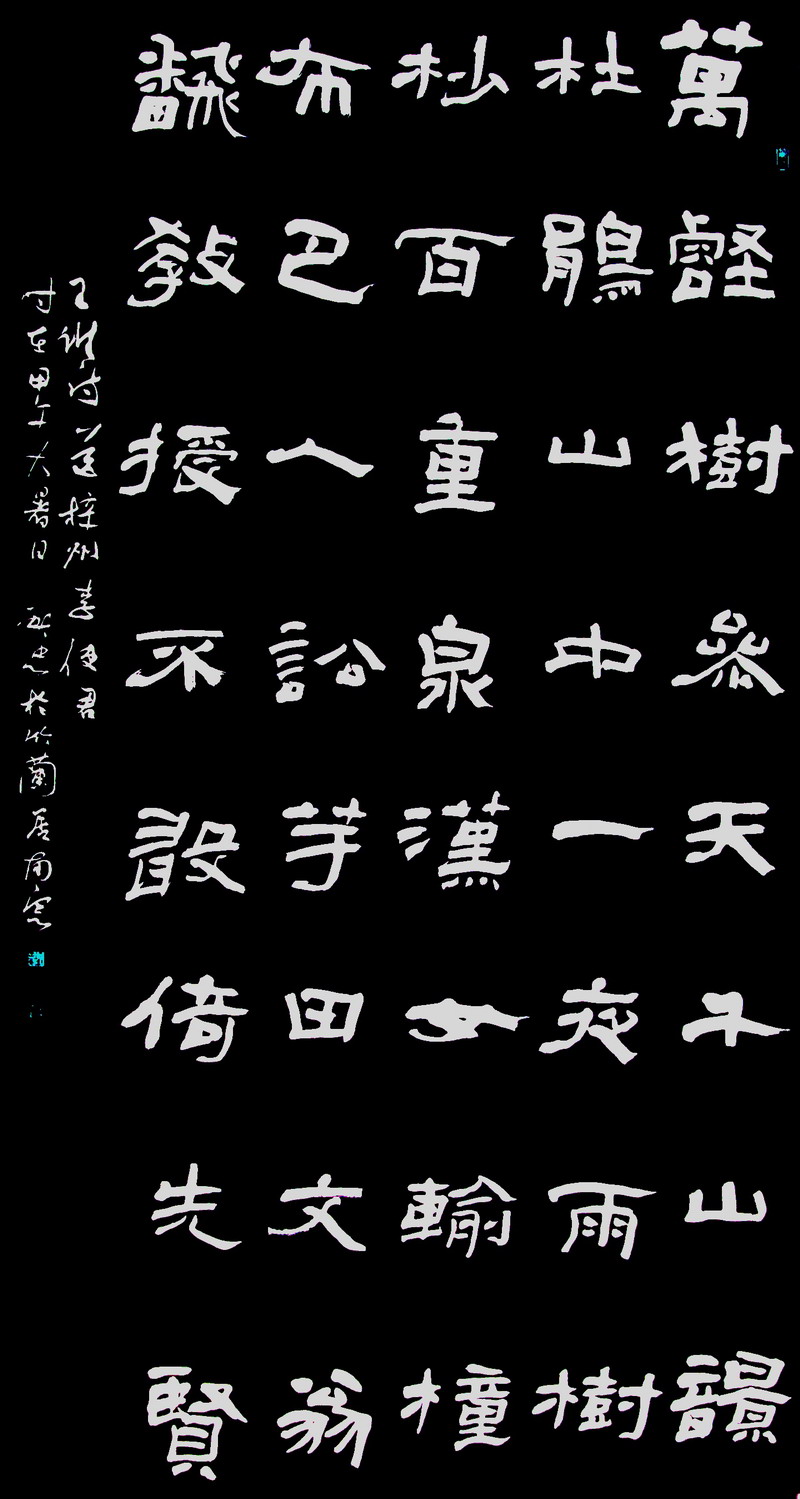 萬壑樹參天千山響
杜鵑山中一夜雨樹
杪百重泉漢女輸橦
布巴人訟芋田文翁
飜敎授不敢倚先賢
王維诗送梓州李使君
时在甲午大暑日忠於竹蘭居南窓